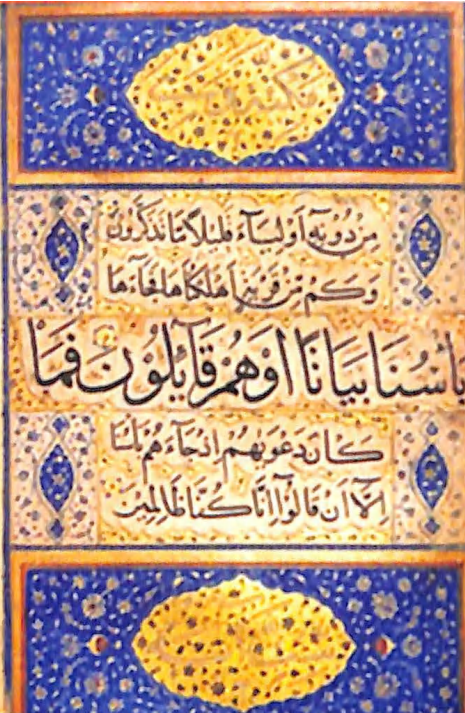 مِنْ دُونِهِ أَوْلِيَآءَ قَلِيلًا مَا تَذَكَّرُونَ
وَكَمْ مِنْ قَرْيَةٍ اَهْلَكْنَاهَا فَجَآءَهَا
بَأْسُنَا بَيَاتًا اَوْ هُمْ قَآئِلُونَ فَمَا
كَانَ دَعْوٰيهُمْ اِذْ جَآءَهُمْ بَأْسُنَا
اِلَّآ اَنْ قَالُوٓا اِنَّا كُنَّا ظَالِمِينَ